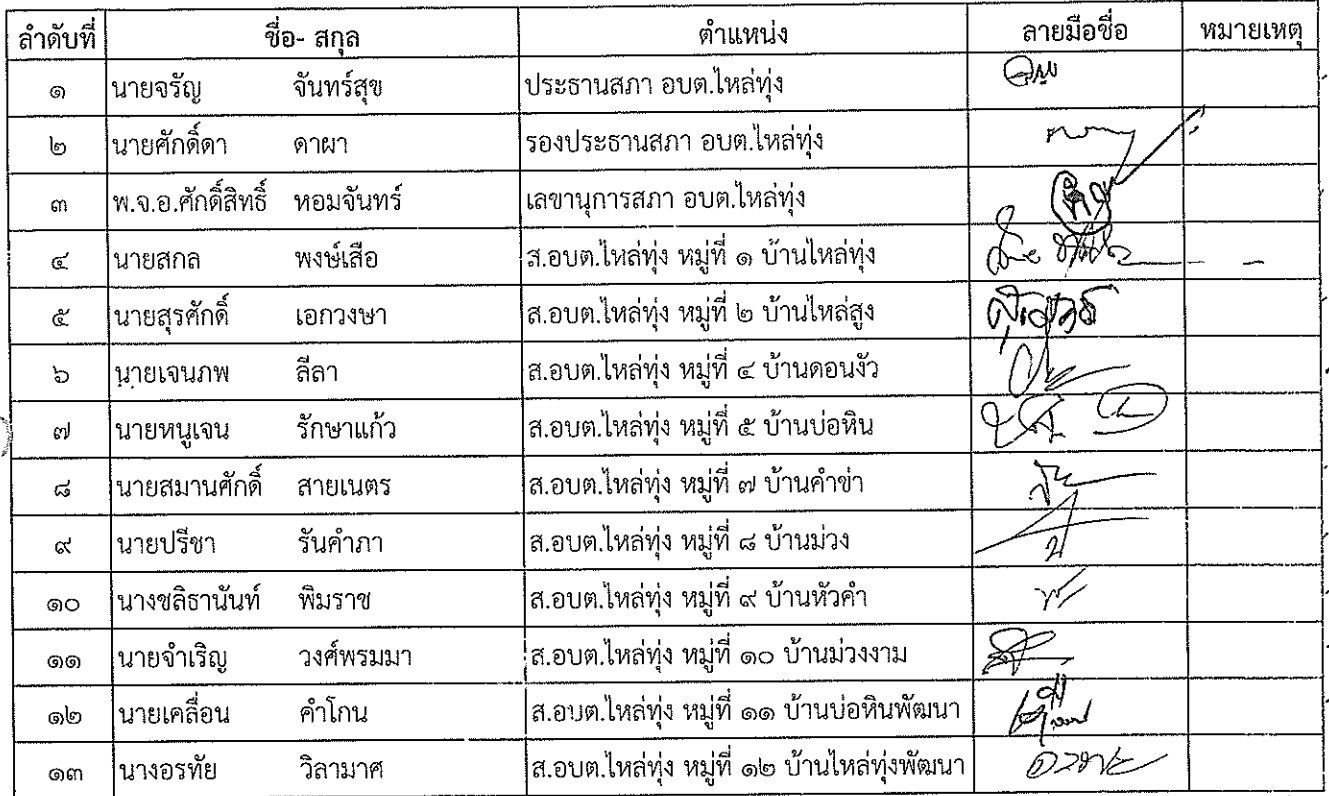 ลำดับที่ ชื่อ- สกุล ตำแหน่ง ลายมือชื่อ หมายเหตุ
๑ นายจรัญ จันทร์สุข ประธานสภา อบต.ไหล่ทุ่ง
๒ นายศักดิ์ดา ดาผา รองประธานสภา อบต.ไหล่ทุ่ง
๓ พ.จ.อ.ศักดิ์สิทธิ์ หอมจันทร์ เลขานุการสภา อบต.ไหล่ทุ่ง
๔ นายสกล พงษ์เสือ ส.อบต.ไหล่ทุ่ง หมู่ที่ ๑ บ้านไหล่ทุ่ง
๕ นายสุรศักดิ์ เอกวงษา ส.อบต.ไหล่ทุ่ง หมู่ที่ ๒ บ้านไหล่สูง
๖ นายเจนภพ ลีลา ส.อบต.ไหล่ทุ่ง หมู่ที่ ๔ บ้านดอนงัว
๗ นายหนูเจน รักษาแก้ว ส.อบต.ไหล่ทุ่ง หมู่ที่ ๕ บ้านบ่อหิน
๘ นายสมานศักดิ์ สายเนตร ส.อบต.ไหล่ทุ่ง หมู่ที่ ๗ บ้านคำข่า
๙ นายปรีชา รันคำภา ส.อบต.ไหล่ทุ่ง หมู่ที่ ๘ บ้านม่วง
๑๐ นางชลิธานันท์ พิมราช ส.อบต.ไหล่ทุ่ง หมู่ที่ ๙ บ้านหัวคำ
๑๑ นายจำเริญ วงศ์พรมมา ส.อบต.ไหล่ทุ่ง หมู่ที่ ๑๐ บ้านม่วงงาม
๑๒ นายเคลื่อน คำโกน ส.อบต.ไหล่ทุ่ง หมู่ที่ ๑๑ บ้านบ่อหินพัฒนา
๑๓ นางอรทัย วิลามาศ ส.อบต.ไหล่ทุ่ง หมู่ที่ ๑๒ บ้านไหล่ทุ่งพัฒนา